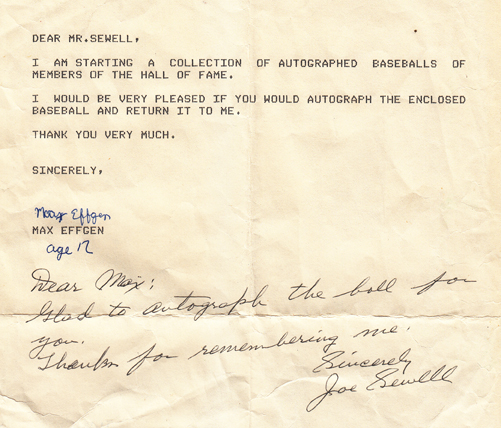 DEAR MR.SEWELL,
I AM STARTING A COLLECTION OF AUTOGRAPHED BASEBALLS OF
MEMBERS OF THE HALL OF FAME.
I WOULD BE VERY PLEASED IF YOU WOULD AUTOGRAPH THE ENCLOSED
BASEBALL AND RETURN IT TO ME.
THANK YOU VERY MUCH.
SINCERELY,
Max Effgen
MAX EFFGEN
age 12
Dear Max:
Glad to autograph the ball for
you.
Thanks for remembering me.
Sincerely
Joe Sewell